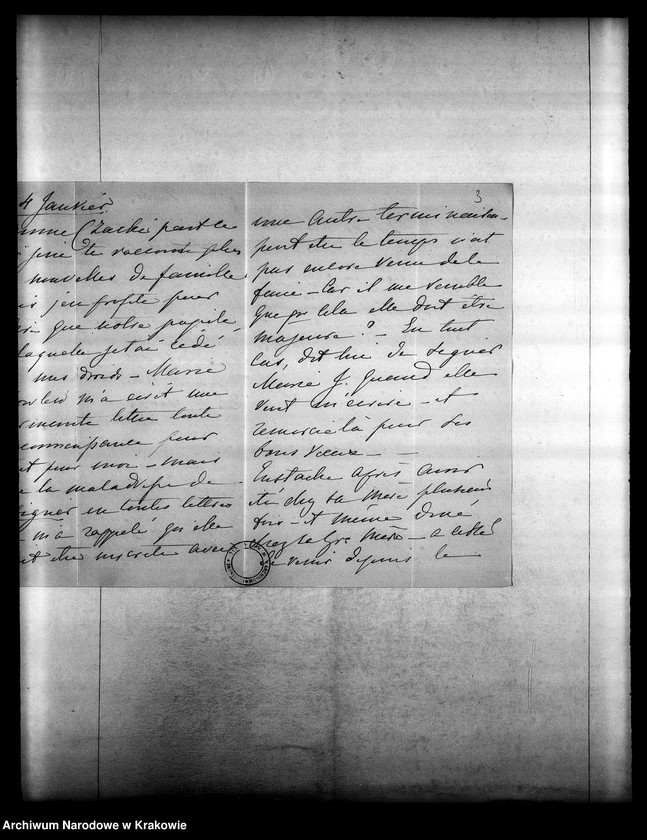 4 Janvier
Czacki part ce
te raconte plus
nouvelles de famille
j'en profite pour
que notre pupile
laquelle je t'ai cédé
mes droits - Marie
m'a écrit une
lettre toute
pour
pour moi - mais
la maladresse de
signer en toutes lettres
m'a rappelé qu'elle
être inscrite avec
3
une autre terminaison
peut être le temps n'est
pas encore venu de le
faire - Car il me semble
que par cela elle doit être
majeure ? - En tout
cas, dit lui de signer
Marie J. quand elle
veut m'écrire - et
remercie là pour ses
bons voeux -
Eustache après avoir
été chez sa mère plusieurs
fois - et même diné
chez la Gr. mère - a cessé
de venir depuis le
Archiwum Narodowe w Krakowie